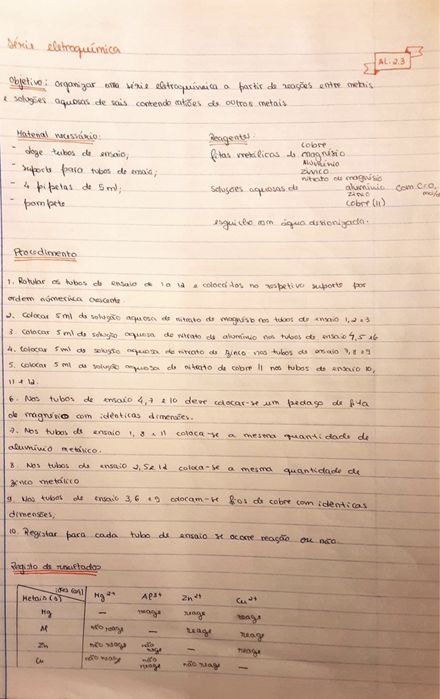 Série eletroquímica
AL-2.3
Objetivo: organizar uma série eletroquímica a partir de reações entre metais
e soluções aquosas de sais contendo catiões de outros metais
Material necessário:
- doze tubos de ensaio;
- suporte para tubos de ensaio;
- 4 pipetas de 5 ml;
- pompete
Reagentes:
fitas metálicas de
cobre
magnésio
Alumínio
zinco
soluções aquosas de
nitrato de magnésio
alumínio
zinco
cobre (II)
com C=0,
mol/d
esguicho com água desionizada.
Procedimento
1. Rotular os tubos de ensaio de 1 a 12 e colocá-los no respetivo suporte por
ordem númerica crescente.
2. Colocar 5 ml de solução aquosa de nitrato de magnésio nos tubos de ensaio 1, 2 e 3
3. Colocar 5 ml de solução aquosa de nitrato de alumínio nos tubos de ensaio 4, 5 e 6
4. Colocar 5 ml de solução aquosa de nitrato de zinco nos tubos de ensaio 7, 8 e 9
5. Colocar 5 ml de solução aquosa de nitrato de cobre II nos tubos de ensaio 10,
11 e 12.
6. Nos tubos de ensaio 4, 7 e 10 deve colocar-se um pedaço de fita
de magnésio com idênticas dimensões.
7. Nos tubos de ensaio 1, 8 e 11 coloca-se a mesma quantidade de
alumínio metálico.
8. Nos tubos de ensaio 2, 5 e 12 coloca-se a mesma quantidade de
zinco metálico
9. Nos tubos de ensaio 3, 6 e 9 colocam-se fios de cobre com idênticas
dimensões.
10. Registar para cada tubo de ensaio se ocorre reação ou não.
Registo de resultados
Metais (s) iões (aq) Mg2+ Al3+ Zn2+ Cu2+
Mg — reage reage reage
Al não reage — reage reage
Zn não reage não reage — reage
Cu não reage não reage não reage —